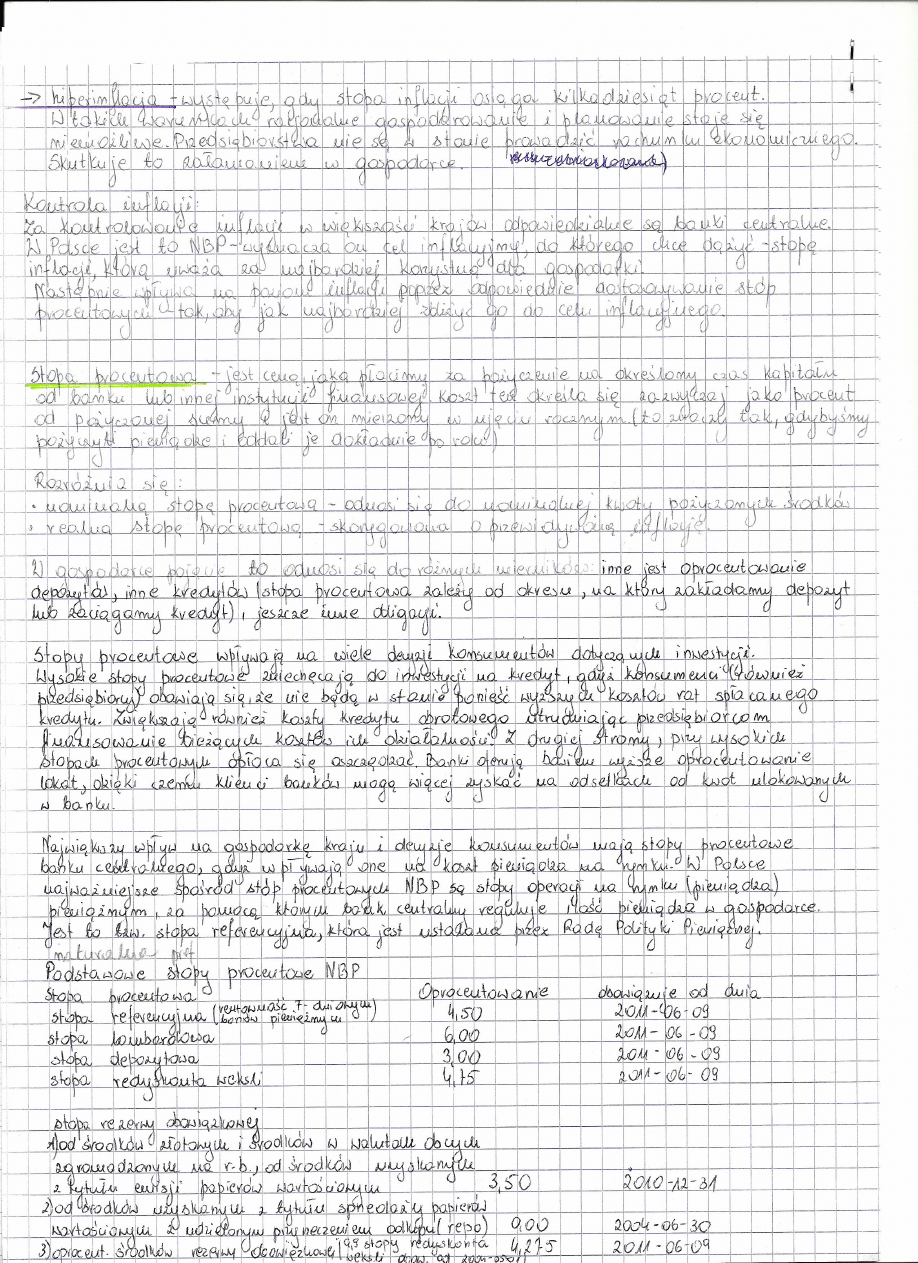 → hiperinflacja - występuje, gdy stopa inflacji osiąga kilkadziesiąt procent.
W takich warunkach racjonalne gospodarowanie i planowanie staje się
niemożliwe. Przedsiębiorstwa nie są w stanie prowadzić rachunku ekonomicznego.
Skutkuje to załamaniem w gospodarce.
Kontrola inflacji:
Za kontrolowanie inflacji w większości krajów odpowiedzialne są banki centralne.
W Polsce jest to NBP - wyznacza on cel inflacyjny, do którego chce dążyć - stopę
inflacji, którą uważa za najbardziej korzystną dla gospodarki.
Następnie wpływa na poziom inflacji poprzez odpowiednie dostosowywanie stóp
procentowych - tak, aby jak najbardziej zbliżyć go do celu inflacyjnego.
Stopa procentowa - jest ceną, jaką płacimy za pożyczenie na określony czas kapitału
od banku lub innej instytucji finansowej. Koszt ten określa się zazwyczaj jako procent
od pożyczonej sumy i jest on mierzony w ujęciu rocznym (to znaczy tak, gdybyśmy
pożyczyli pieniądze i oddali je dokładnie po roku)
Rozróżnia się:
• nominalną stopę procentową - odnosi się do nominalnej kwoty pożyczonych środków
• realną stopę procentową - skorygowana o przewidywaną inflację.
W gospodarce pojęcie to odnosi się do różnych mierników: inne jest oprocentowanie
depozytów, inne kredytów (stopa procentowa zależy od okresu, na który zakładamy depozyt
lub zaciągamy kredyt), jeszcze inne obligacji.
Stopy procentowe wpływają na wiele decyzji konsumentów dotyczących inwestycji.
Wysokie stopy procentowe zniechęcają do inwestycji na kredyt, gdyż konsumenci (również
przedsiębiorcy) obawiają się, że nie będą w stanie ponieść wyższych kosztów rat spłacanego
kredytu. Zwiększają również koszty kredytu obrotowego utrudniając przedsiębiorcom
finansowanie bieżących kosztów ich działalności. Z drugiej strony, przy wysokich
stopach procentowych opłaca się oszczędzać. Banki oferują bowiem wyższe oprocentowanie
lokat, dzięki czemu klienci banków mogą więcej zyskać na odsetkach od kwot ulokowanych
w banku.
Największy wpływ na gospodarkę kraju i decyzje konsumentów mają stopy procentowe
banku centralnego, gdyż wpływają one na koszt pieniądza na rynku. W Polsce
najważniejsze spośród stóp procentowych NBP są stopy operacji na rynku (pieniądza)
pieniężnym, za pomocą których bank centralny reguluje ilość pieniądza w gospodarce.
Jest to tzw. stopa referencyjna, która jest ustalana przez Radę Polityki Pieniężnej.
Podstawowe stopy procentowe NBP
Stopa procentowa Oprocentowanie obowiązuje od dnia
stopa referencyjna (rentowność 7-dniowych bonów pieniężnych) 4,50 2011-06-09
stopa lombardowa 6,00 2011-06-09
stopa depozytowa 3,00 2011-06-09
stopa redyskonta weksli 4,75 2011-06-09
stopa rezerwy obowiązkowej
1) od środków złotowych i środków w walutach obcych
zgromadzonych na r-b., od środków uzyskanych
z tytułu emisji papierów wartościowych 3,50 2010-12-31
2) od środków uzyskanych z tytułu sprzedaży papierów
wartościowych z udzielonym przyrzeczeniem odkupu (repo) 0,00 2004-06-30
3) oprocent. środków rezerwy obowiązkowej (0,9 stopy redyskonta 4,275 2011-06-09
weksli